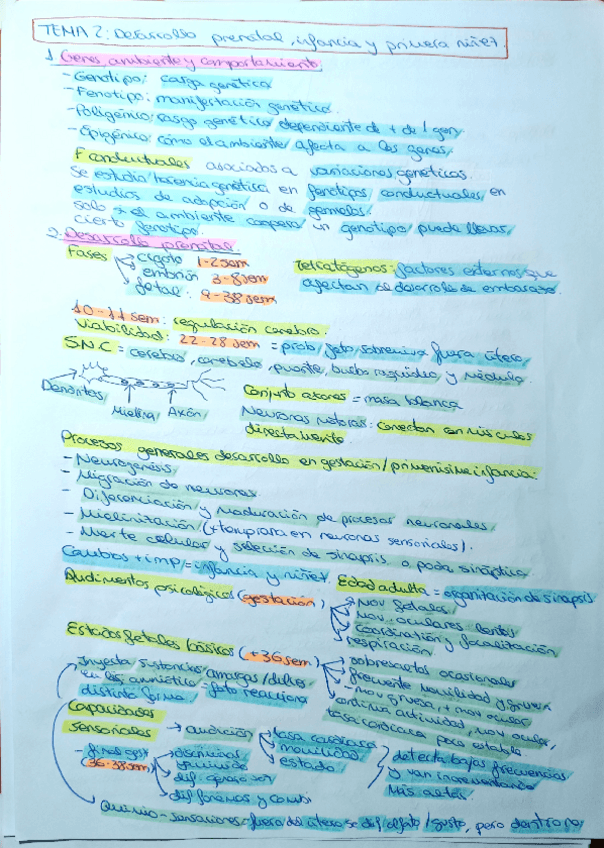 TEMA 2: Desarrollo prenatal, infancia y primera niñez.
1. Genes, ambiente y comportamiento
- Genotipo: carga genética
- Fenotipo: manifestación genética.
- Poligénico: rasgo genético dependiente de + de 1 gen
- Epigénico: cómo el ambiente afecta a los genes,
F conductuales asociados a variaciones genéticas.
Se estudia herencia genética en fenotipos conductuales, en
estudios de adopción o de gemelos.
Solo si el ambiente coopera un genotipo puede llevar
cierto fenotipo.
2. Desarrollo prenatal.
Fases cigoto 1-2 sem
embrión 3-8 sem
fetal: 9-38 sem
Teratógenos: factores externos que
afectan desarrollo de embarazo.
10-11 sem: regulación cerebro.
Viabilidad: 22-28 sem = prob feto sobreviva fuera útero,
SNC = cerebro, cerebelo, puente, bulbo raquídeo y médula.
Dendritas
Mielina Axón
Conjunto axones = masa blanca
Neuronas motoras: conectan con músculos
directamente.
Procesos generales desarrollo en gestación/primerísima infancia:
- Neurogénesis
- Migración de neuronas
- Diferenciación y maduración de procesos neuronales
- Mielinización (+ temprana en neuronas sensoriales).
- Muerte celular y selección de sinapsis o poda sináptica
Cambios + imp = infancia y niñez. Edad adulta = organización de sinapsis
Rudimentos psicológicos (gestación)
mov fetales
mov. oculares lentos
coordinación y focalización
respiración
Estados fetales básicos (+36 sem)
sobresaltos ocasionales
frecuente movilidad y
mov grueso, + mov ocular
continua actividad, mov ocular,
tasa cardiaca poco estable
Ingesta sustancias amargas/dulces
en líq amniótico = feto reacciona
distinta forma
Capacidades
sensoriales → audición
tasa cardiaca
movilidad
estado
- final gest
(36-38 sem)
discriminar
dif.
dif fonemas y cambi
detecta bajas frecuencias
y van incrementando
más
Quimio-sensaciones: fuera del útero se dif olfato/gusto, pero dentro no